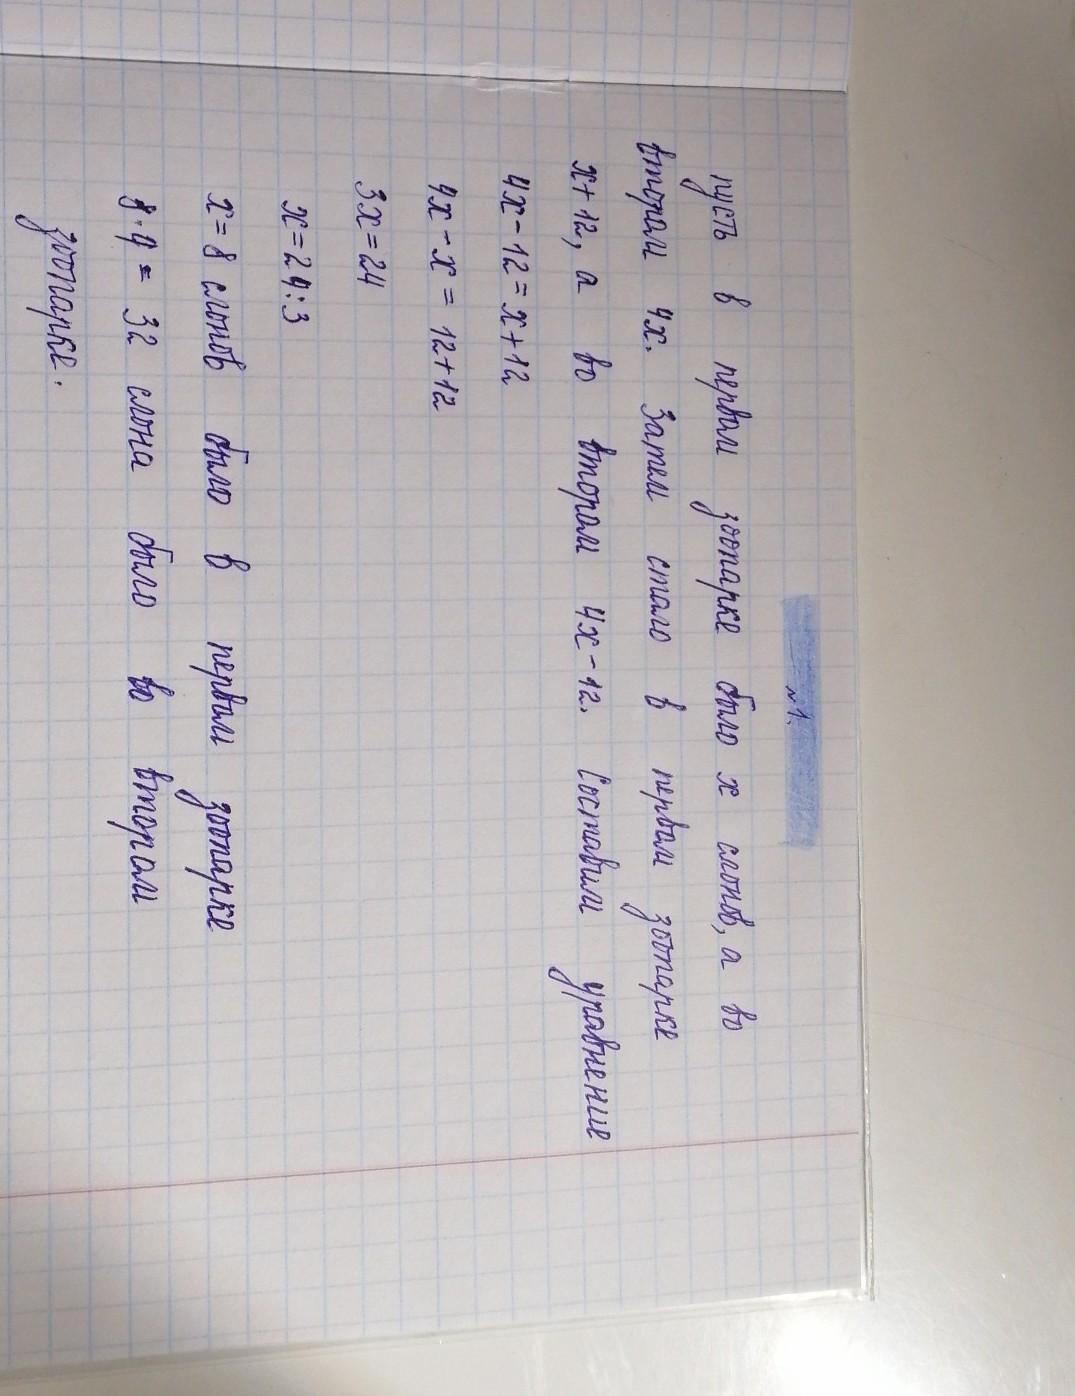 №1.
пусть в первом зоопарке было x слонов, а во
втором 4x. Затем стало в первом зоопарке
x+12, а во втором 4x-12. Составим уравнение
4x-12=x+12
4x-x=12+12
3x=24
x=24:3
x=8 слонов было в первом зоопарке
8·4=32 слона было во втором
зоопарке.